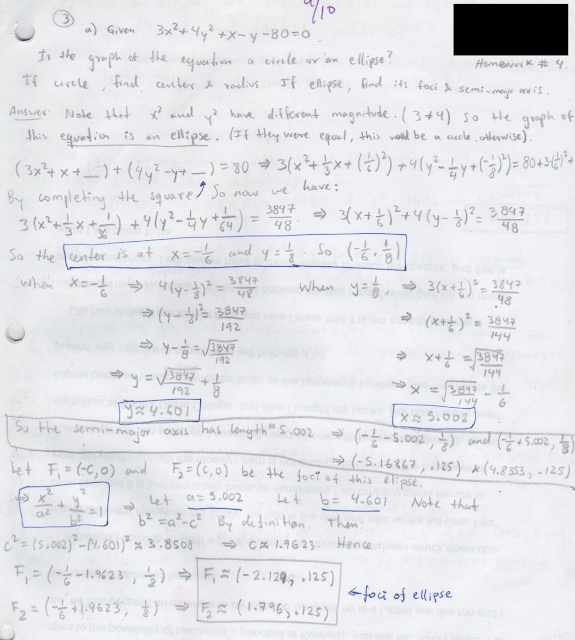 9/10
③
a) Given 3x²+4y²+x-y-80=0.
Is the graph of the equation a circle or an ellipse?
Homework # 4.
If circle, find center & radius. If ellipse, find its foci & semi-major axis.
Answer: Note that x² and y² have different magnitude. (3≠4) So the graph of
this equation is an ellipse. (If they were equal, this would be a circle, otherwise).
(3x²+x+__)+(4y²-y+__)=80 ⇒ 3(x²+1/3x+(1/6)²)+4(y²-1/4y+(-1/8)²)=80+3(1/6)²+
By completing the square So now we have:
3(x²+1/3x+1/36)+4(y²-1/4y+1/64)=3847/48 ⇒ 3(x+1/6)²+4(y-1/8)²=3847/48
So the center is at x=-1/6 and y=1/8. So (-1/6, 1/8)
When x=-1/6 ⇒ 4(y-1/8)²=3847/48 When y=1/8, ⇒ 3(x+1/6)²=3847/48
⇒ (y-1/8)²=3847/192 ⇒ (x+1/6)²=3847/144
⇒ y-1/8=√3847/192 ⇒ x+1/6=√3847/144
⇒ y=√3847/192+1/8 ⇒ x=√3847/144-1/6
y≈4.601 x≈5.002
So the semi-major axis has length≈5.002 ⇒ (-1/6-5.002, 1/8) and (-1/6+5.002, 1/8)
⇒ (-5.16867, .125) & (4.8353, .125)
Let F₁=(-c,0) and F₂=(c,0) be the foci of this ellipse.
⇒ x²/a²+y²/b²=1 ⇒ Let a=5.002 Let b=4.601. Note that
b²=a²-c² By definition. Then,
c²=(5.002)²-(4.601)²≈3.8508 ⇒ c≈1.9623. Hence
F₁=(-1/6-1.9623, 1/8) ⇒ F₁≈(-2.129, .125)
←foci of ellipse
F₂=(-1/6+1.9623, 1/8) ⇒ F₂≈(1.796, .125)